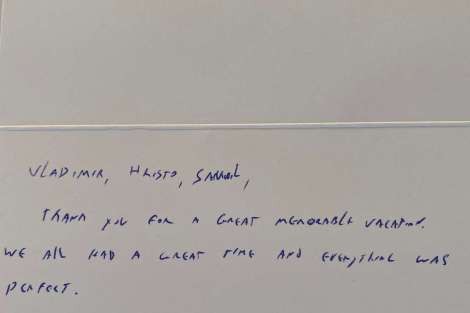 VLADIMIR, HRISTO,
THANK YOU FOR A GREAT MEMORABLE VACATION.
WE All HAD A GREAT TIME AND EVERYTHING WAS
PERFECT.